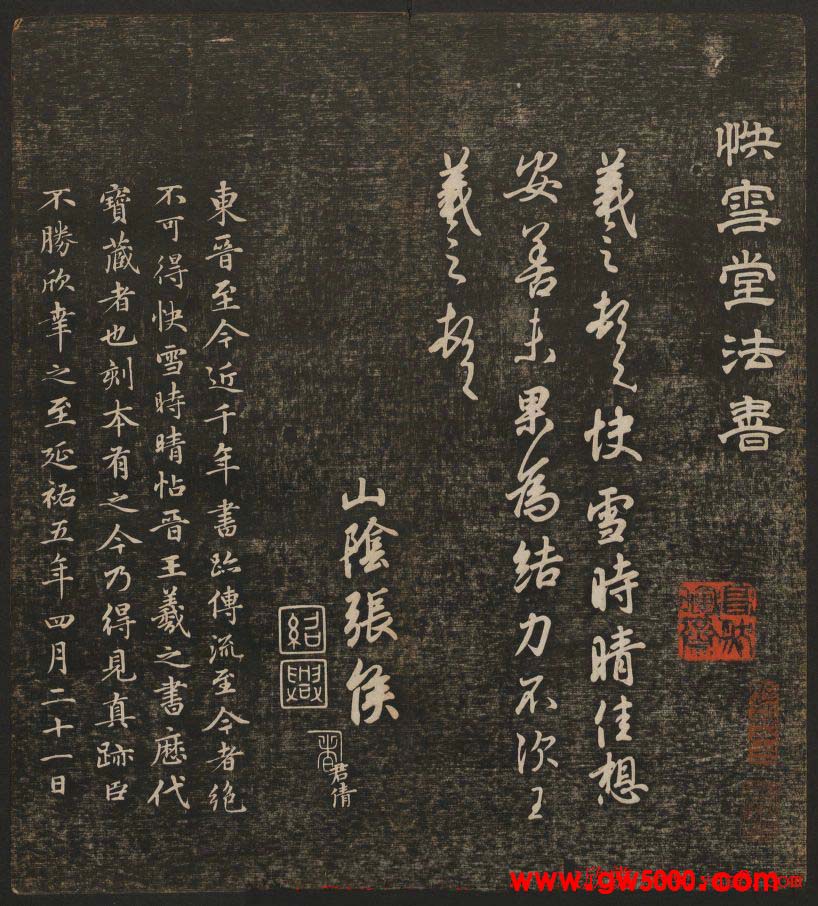 快雪堂法書
羲之頓首快雪時晴佳想
安善未果為結力不次王
羲之頓首
山陰張侯
紹興
君倩
東晉至今近千年書跡傳流至今者絕
不可得快雪時晴帖晉王羲之書歷代
寶藏者也刻本有之今乃得見真跡臣
不勝欣幸之至延祐五年四月二十一日
www.gw5000.com